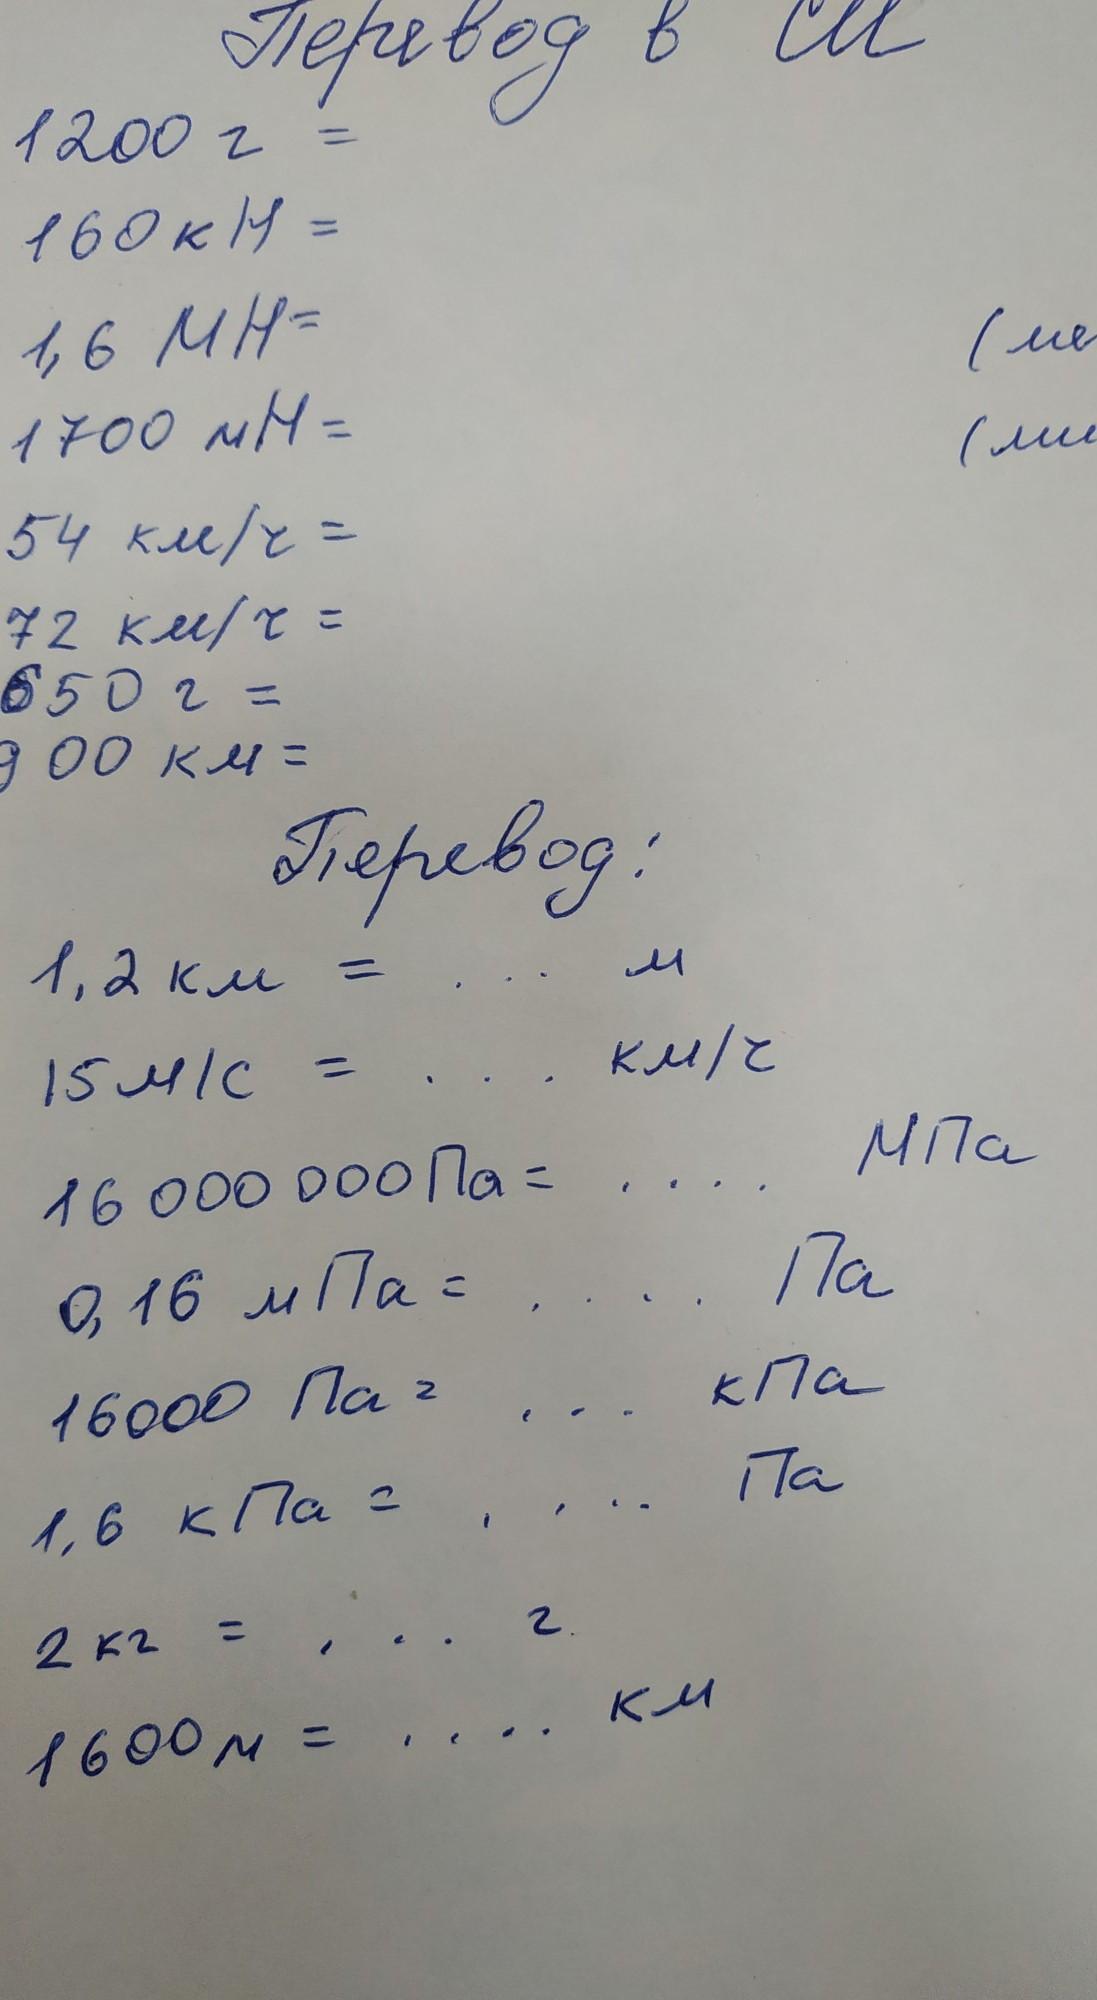 Перевод в СИ
1200 г =
160 кН =
1,6 МН =
1700 мН =
54 км/ч =
72 км/ч =
650 г =
900 км =
Перевод:
1,2 км = ... м
15 м/с = ... км/ч
16 000 000 Па = .... МПа
0,16 мПа = .... Па
16000 Па = ... кПа
1,6 кПа = .... Па
2 кг = ... г.
1600 м = .... км